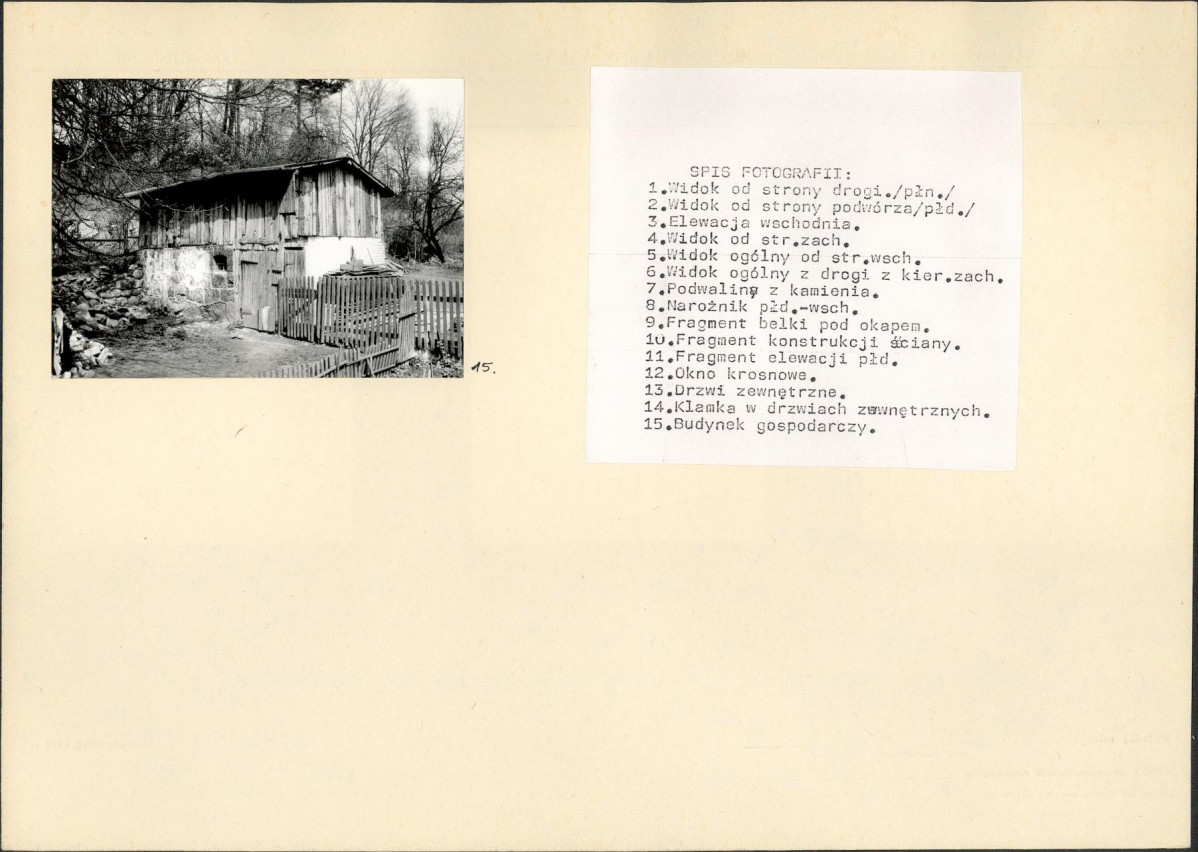 15.
SPIS FOTOGRAFII:
1.Widok od strony drogi./płn./
2.Widok od strony podwórza/płd./
3.Elewacja wschodnia.
4.Widok od str.zach.
5.Widok ogólny od str.wsch.
6.Widok ogólny z drogi z kier.zach.
7.Podwaliny z kamienia.
8.Narożnik płd.-wsch.
9.Fragment belki pod okapem.
10.Fragment konstrukcji ściany.
11.Fragment elewacji płd.
12.Okno krosnowe.
13.Drzwi zewnętrzne.
14.Klamka w drzwiach zewnętrznych.
15.Budynek gospodarczy.